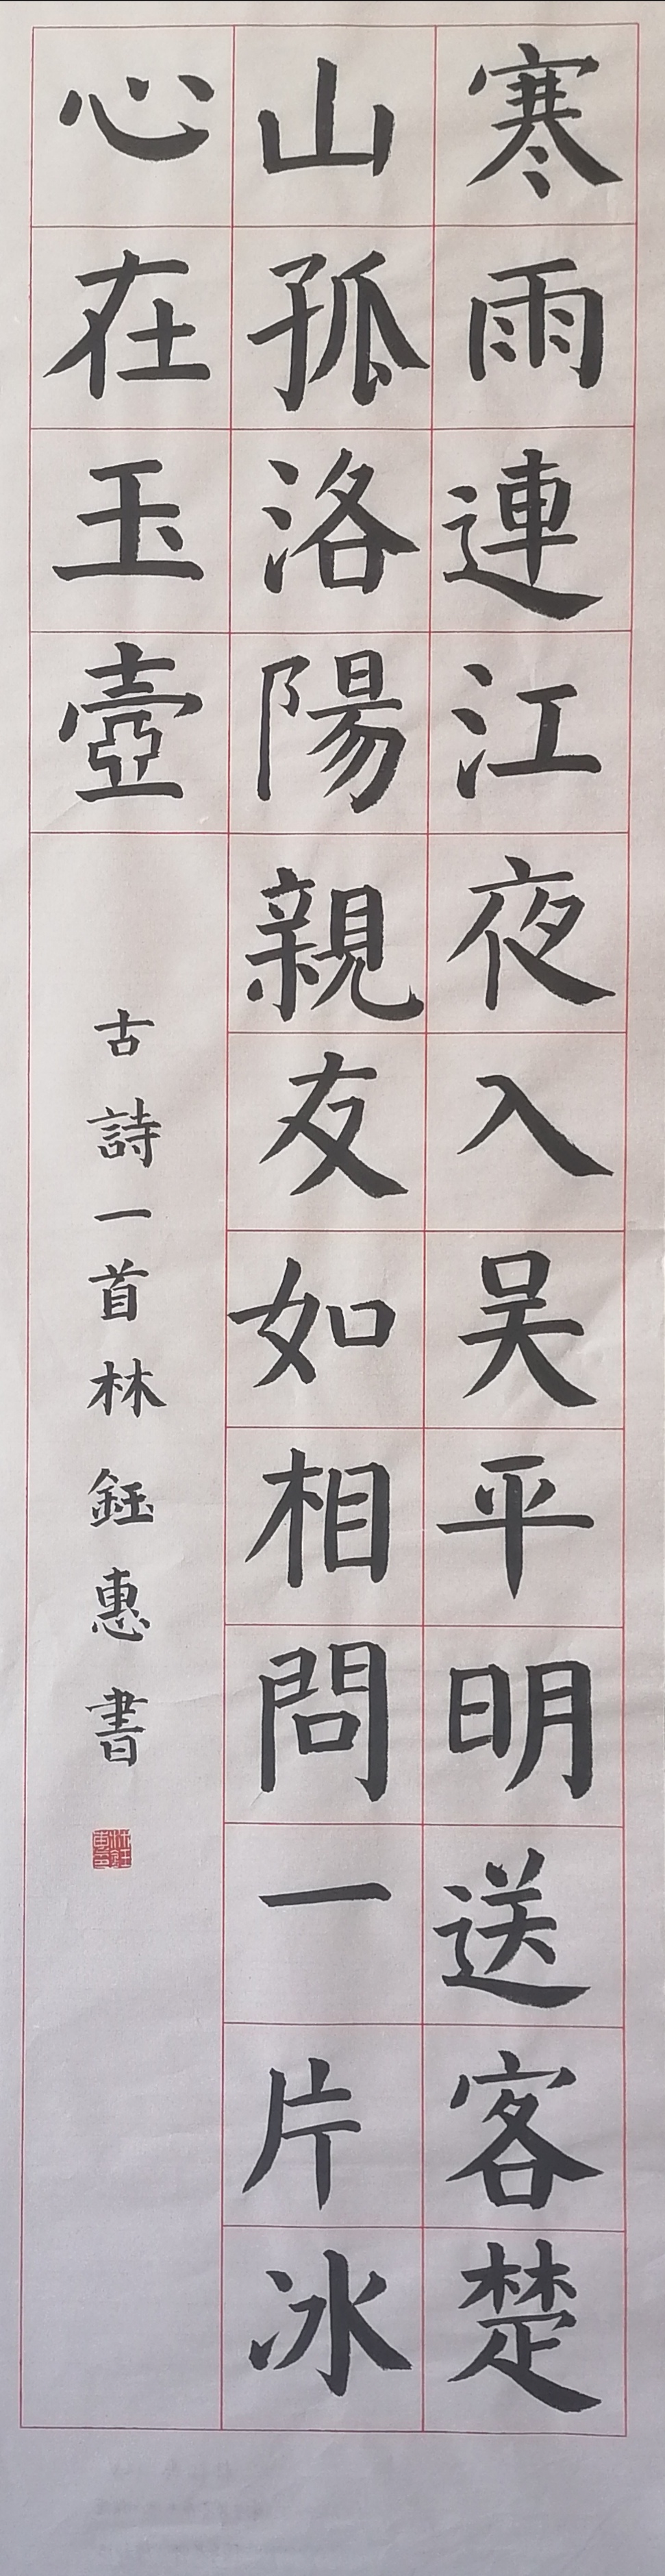 寒雨連江夜入吴平明送客楚
山孤洛陽親友如相問一片冰
心在玉壺
古詩一首林鈺惠書